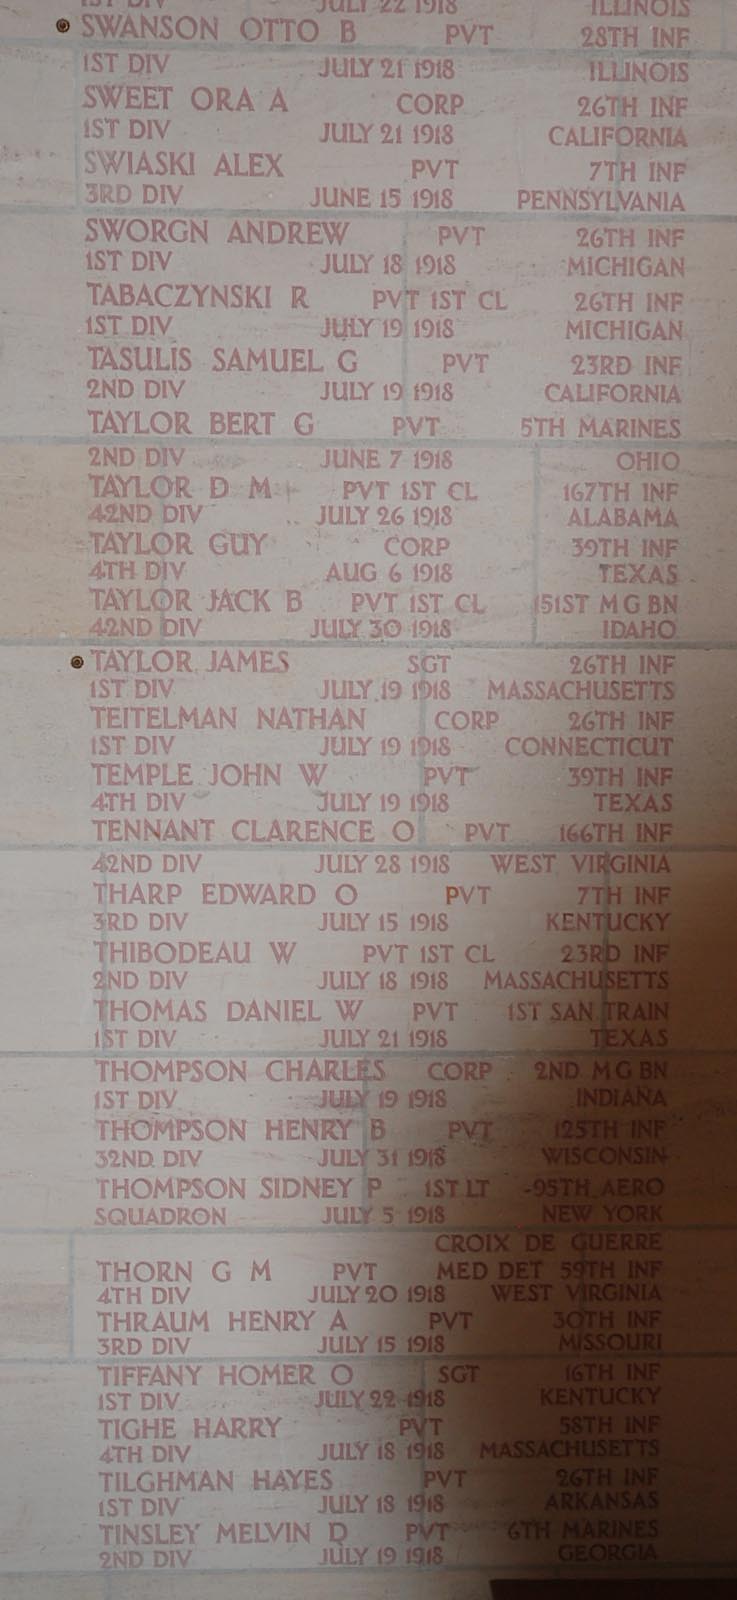 1ST DIV JULY 22 1918 ILLINOIS
SWANSON OTTO B PVT 28TH INF
1ST DIV JULY 21 1918 ILLINOIS
SWEET ORA A CORP 26TH INF
1ST DIV JULY 21 1918 CALIFORNIA
SWIASKI ALEX PVT 7TH INF
3RD DIV JUNE 15 1918 PENNSYLVANIA
SWORGN ANDREW PVT 26TH INF
1ST DIV JULY 18 1918 MICHIGAN
TABACZYNSKI R PVT 1ST CL 26TH INF
1ST DIV JULY 19 1918 MICHIGAN
TASULIS SAMUEL G PVT 23RD INF
2ND DIV JULY 19 1918 CALIFORNIA
TAYLOR BERT G PVT 5TH MARINES
2ND DIV JUNE 7 1918 OHIO
TAYLOR D M PVT 1ST CL 167TH INF
42ND DIV JULY 26 1918 ALABAMA
TAYLOR GUY CORP 39TH INF
4TH DIV AUG 6 1918 TEXAS
TAYLOR JACK B PVT 1ST CL 151ST M G BN
42ND DIV JULY 30 1918 IDAHO
TAYLOR JAMES SGT 26TH INF
1ST DIV JULY 19 1918 MASSACHUSETTS
TEITELMAN NATHAN CORP 26TH INF
1ST DIV JULY 19 1918 CONNECTICUT
TEMPLE JOHN W PVT 39TH INF
4TH DIV JULY 19 1918 TEXAS
TENNANT CLARENCE O PVT 166TH INF
42ND DIV JULY 28 1918 WEST VIRGINIA
THARP EDWARD O PVT 7TH INF
3RD DIV JULY 15 1918 KENTUCKY
THIBODEAU W PVT 1ST CL 23RD INF
2ND DIV JULY 18 1918 MASSACHUSETTS
THOMAS DANIEL W PVT 1ST SAN TRAIN
1ST DIV JULY 21 1918 TEXAS
THOMPSON CHARLES CORP 2ND M G BN
1ST DIV JULY 19 1918 INDIANA
THOMPSON HENRY B PVT 125TH INF
32ND DIV JULY 31 1918 WISCONSIN
THOMPSON SIDNEY P 1ST LT 95TH AERO
SQUADRON JULY 5 1918 NEW YORK
CROIX DE GUERRE
THORN G M PVT MED DET 59TH INF
4TH DIV JULY 20 1918 WEST VIRGINIA
THRAUM HENRY A PVT 30TH INF
3RD DIV JULY 15 1918 MISSOURI
TIFFANY HOMER O SGT 16TH INF
1ST DIV JULY 22 1918 KENTUCKY
TIGHE HARRY PVT 58TH INF
4TH DIV JULY 18 1918 MASSACHUSETTS
TILGHMAN HAYES PVT 26TH INF
1ST DIV JULY 18 1918 ARKANSAS
TINSLEY MELVIN D PVT 6TH MARINES
2ND DIV JULY 19 1918 GEORGIA